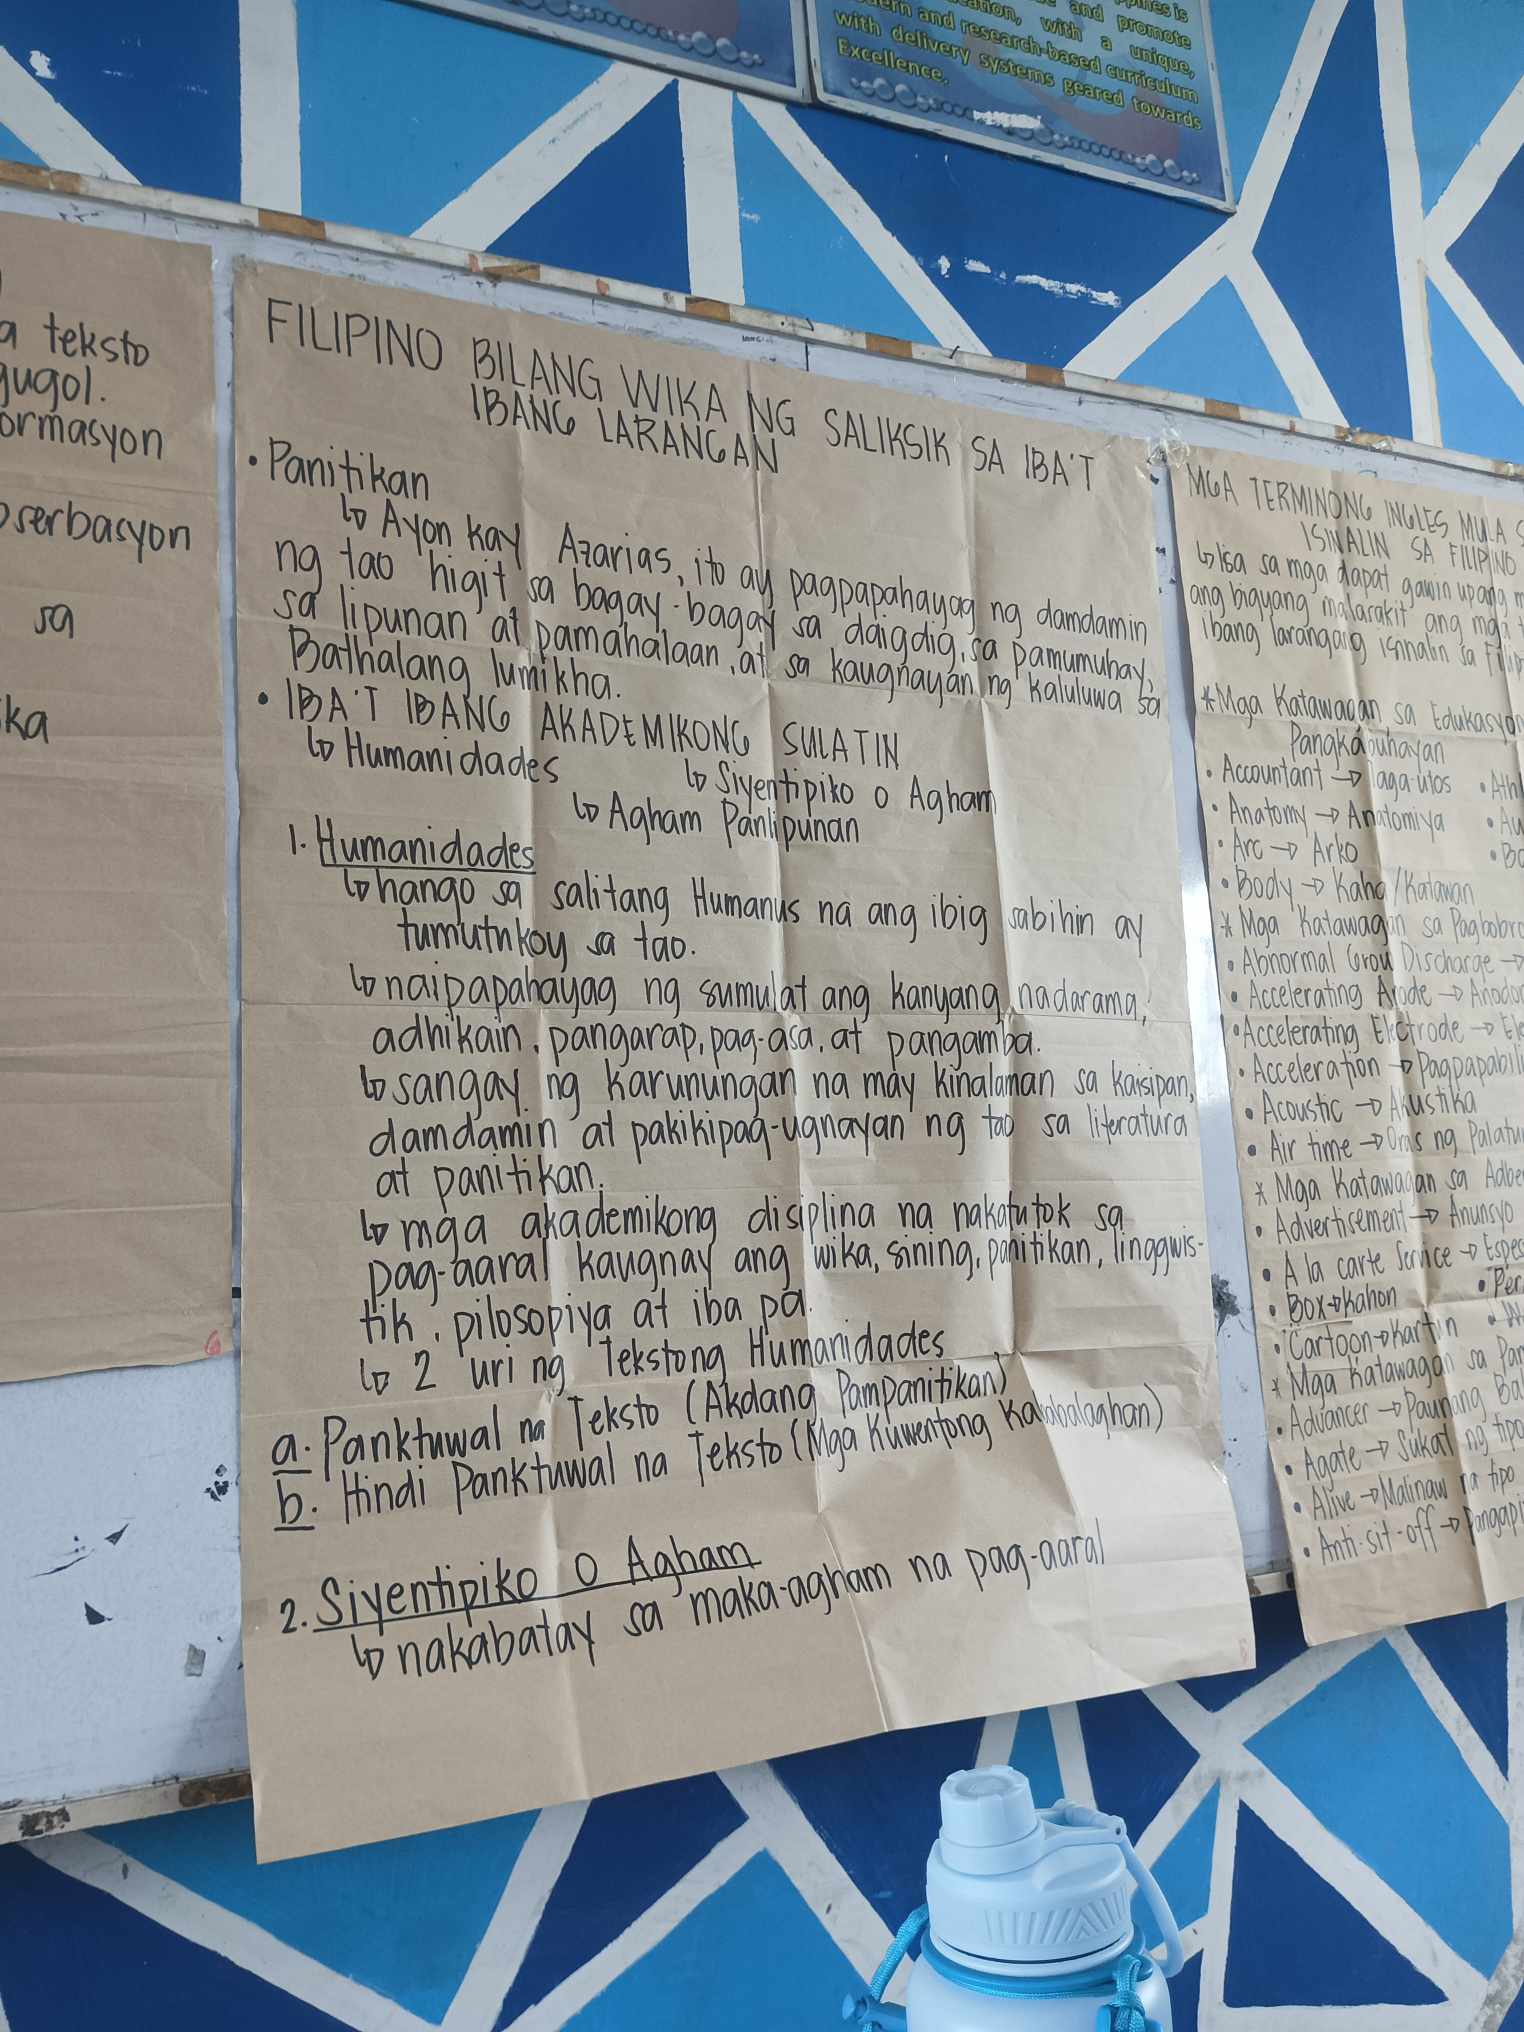 and promote
with a unique,
and research-based curriculum
with delivery systems geared towards
Excellence.
teksto
sa
FILIPINO BILANG WIKA NG SALIKSIK SA IBA'T
IBANG LARANGAN
• Panitikan
↳ Ayon kay Azarias, ito ay pagpapahayag ng damdamin
ng tao higit sa bagay-bagay sa daigdig, sa pamumuhay,
sa lipunan at pamahalaan, at sa kaugnayan ng kaluluwa sa
Bathalang lumikha.
• IBA'T IBANG AKADEMIKONG SULATIN
↳ Humanidades ↳ Siyentipiko o Agham
↳ Agham Panlipunan
1. Humanidades
↳ hango sa salitang Humanus na ang ibig sabihin ay
tumutnkoy sa tao.
↳ naipapahayag ng sumulat ang kanyang nadarama,
adhikain, pangarap, pag-asa, at pangamba.
↳ sangay ng karunungan na may kinalaman sa kaisipan,
damdamin at pakikipag-ugnayan ng tao sa literatura
at panitikan.
↳ mga akademikong disiplina na nakatutok sa
pag-aaral kaugnay ang wika, sining, panitikan, linggwis-
tik, pilosopiya at iba pa.
↳ 2 uri ng Tekstong Humanidades
a. Panktuwal na Teksto (Akdang Pampanitikan)
b. Hindi Panktuwal na Teksto (Mga Kuwentong Kababalaghan)
2. Siyentipiko o Agham
↳ nakabatay sa maka-agham na pag-aaral
MGA TERMINONG INGLES MULA
ISINALIN SA FILIPINO
↳ Isa sa mga dapat gawin upang
ang bigyang malarakit ang mga
ibang larangang isinalin sa
* Mga Katawagan sa Edukasyon
Pangkabuhayan
• Accountant → Taga-utos
• Anatomy → Anatomiya
• Arc → Arko
• Body → Kaha/Katawan
* Mga Katawagan sa
• Abnormal Grow Discharge →
• Accelerating Anode →
• Accelerating Electrode →
• Acceleration →
• Acoustic → Akustika
• Air time → Oras ng
* Mga Katawagan sa
• Advertisement → Anunsyo
• A la carte Service →
• Box → kahon
• Cartoon → Kartun
* Mga Katawagan sa
• Advancer → Paunang
• Agate → Sukat ng tipo
• Alive → Malinaw na tipo
• Anti-sit-off →